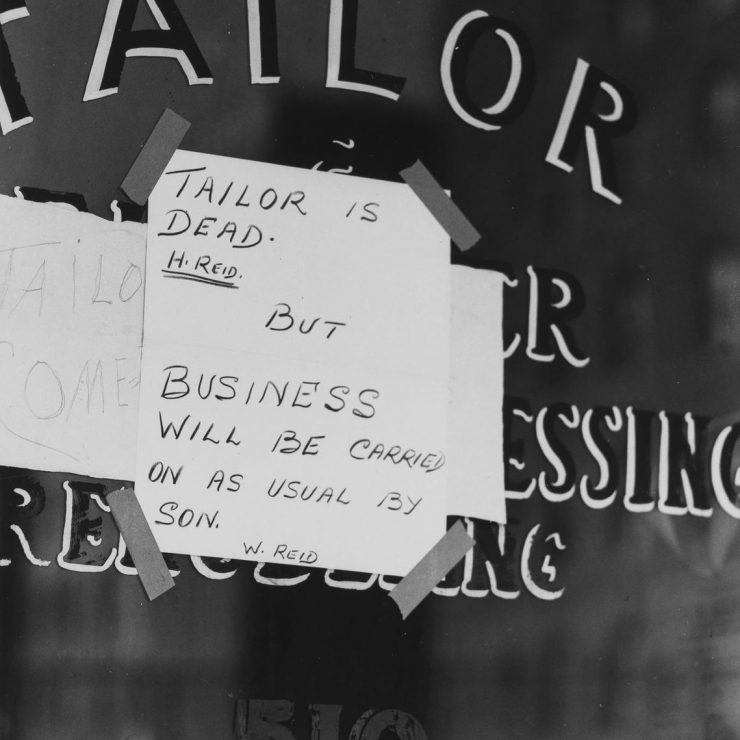 TAILOR
TAILOR IS
DEAD.
H. REID.
BUT
BUSINESS
WILL BE CARRIED
ON AS USUAL BY
SON.
W. REID
TAILO
COME
ER
ESSING
RE
ING
510